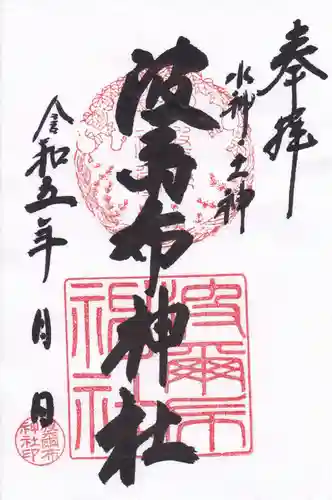 奉拝
水神・土神
波爾布神社
令和五年 月 日
波爾布
神社
波爾布
神社印